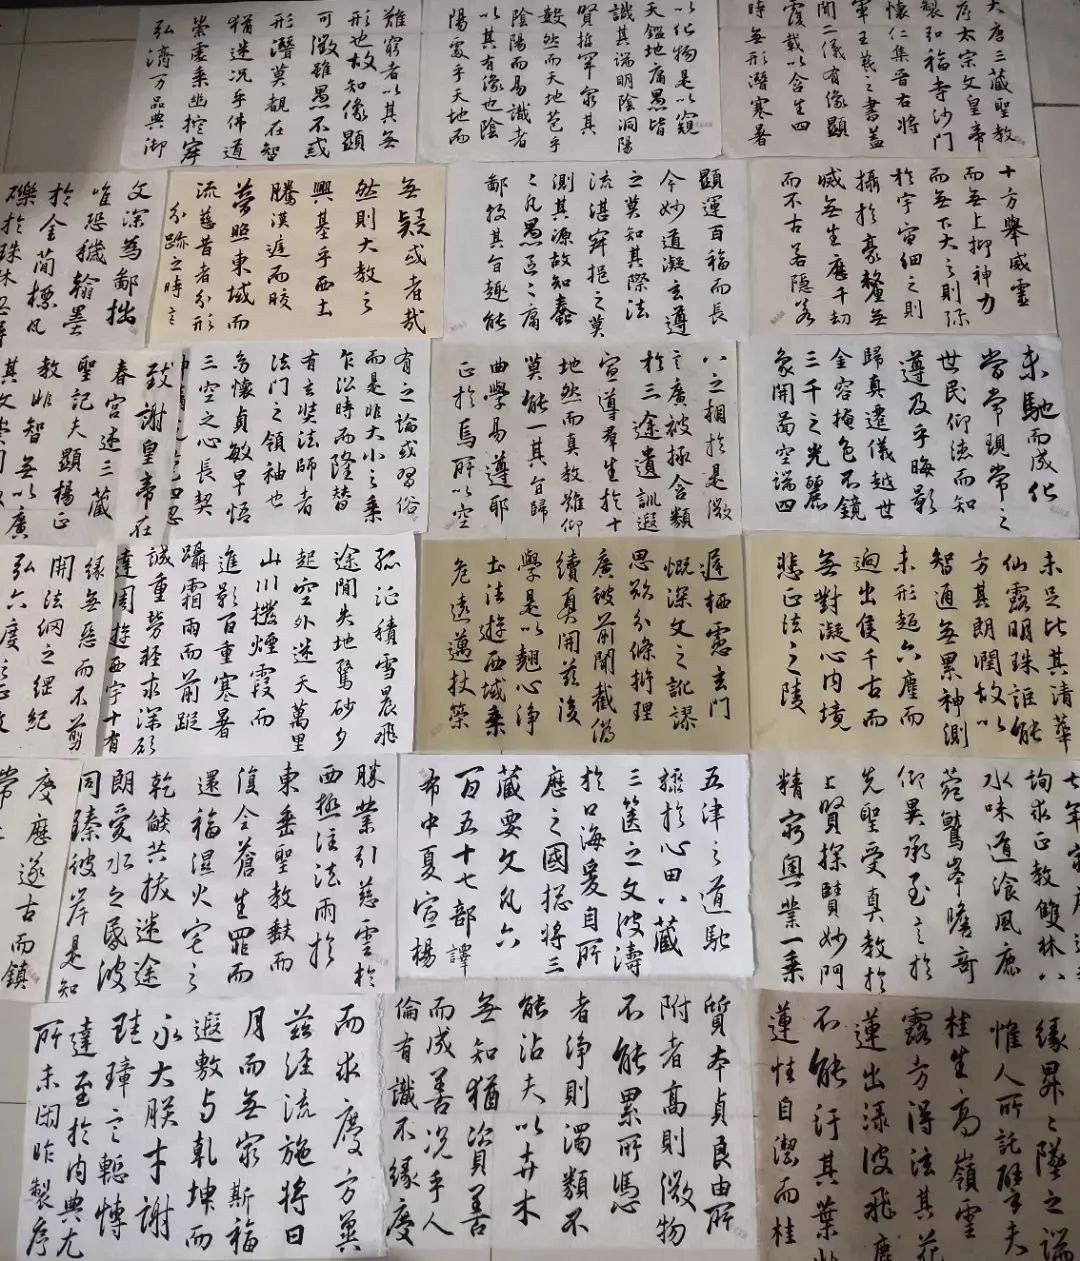 大唐三藏聖教
序太宗文皇帝
製弘福寺沙門
懷仁集晉右將
軍王羲之書蓋
聞二儀有像顯
覆載以含生四
時無形潛寒暑
以化物是以窺
天鑑地庸愚皆
識其端明陰洞陽
賢哲罕窮其
數然而天地苞乎
陰陽而易識者
以其有像也陰
陽處乎天地而
難窮者以其無
形也故知像顯
可徵雖愚不惑
形潛莫覩在智
猶迷况乎佛道
崇虛乘幽控寂
弘濟万品典御
十方舉威靈
而無上抑神力
而無下大之則弥
於宇宙細之則
攝於豪釐無
滅無生歷千劫
而不古若隱若
顯運百福而長
今妙道凝玄遵
之莫知其際法
流湛寂挹之莫
測其源故知蠢
〻凡愚區〻庸
鄙投其旨趣能
無疑或者哉
然則大教之
興基乎西土
騰漢庭而皎
夢照東域而
流慈昔者分形
分跡之時言
未馳而成化
當常現常之
世民仰法而知
遵及乎晦影
歸真遷儀越世
金容掩色不鏡
三千之光麗
象開圖空端四
八之相於是微
言廣被拯含類
於三途遺訓遐
宣導羣生於十
地然而真教難仰
莫能一其旨歸
曲學易遵耶
正於焉所以空
有之論或習俗
而是非大小之乘
乍沿時而隆替
有玄奘法師者
法門之領袖也
幼懷貞敏早悟
三空之心長契
四忍
未足比其清華
仙露明珠詎能
方其朗潤故以
智通無累神測
未形超六塵而
迥出隻千古而
無對凝心内境
悲正法之陵
遲栖慮玄門
慨深文之訛謬
思欲分條析理
廣彼前聞截偽
續真開茲後
學是以翹心淨
土法遊西域乘
危遠邁杖策
孤征積雪晨飛
途間失地驚砂夕
起空外迷天萬里
山川撥煙霞而
進影百重寒暑
躡霜雨而前蹤
誠重勞輕求深願
達周遊西宇十有
七年
詢求正教雙林八
水味道湌風鹿
菀鷲峯瞻奇
仰異承至言於
先聖受真教於
上賢探賾妙門
精窮奧業一乘
五津之道馳
驟於心田八藏
三篋之文波濤
於口海爰自所
歷之國摠將三
藏要文凡六
百五十七部譯
布中夏宣楊
勝業引慈雲於
西極注法雨於
東垂聖教缺而
復全蒼生罪而
還福濕火宅之
乾燄共拔迷途
朗愛水之昏波
同臻彼岸是知
緣昇之墜之端
惟人所託譬夫
桂生高嶺雲
露方得泫其花
蓮出淥波飛塵
不能汙其葉非
蓮性自潔而桂
質本貞良由所
附者高則微物
不能累所憑
者淨則濁類不
能沾夫以卉木
無知猶資善
而成善况乎人
倫有識不緣慶
而求慶方冀
茲經流施將日
月而無窮斯福
遐敷与乾坤而
永大朕才謝
珪璋言慙博
達至於内典尤
所未閑昨製序
文深為鄙拙
唯恐穢翰墨
於金簡標凡
礫於珠林
致謝皇帝在
春宮述三藏
聖記夫顯楊正
教非智無以廣
其文
緣無惡而不剪
開法綱之綱紀
弘六度之正教
度歷遂古而鎮
常